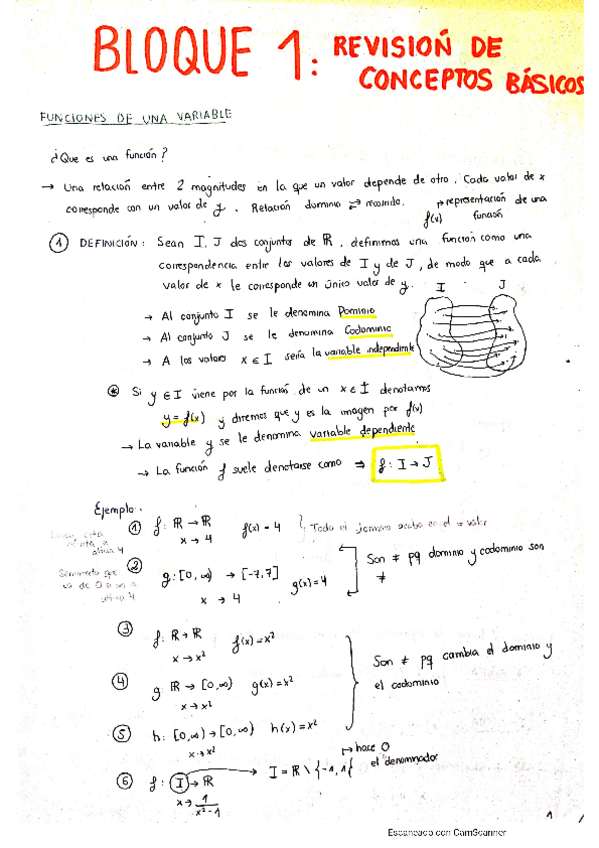 BLOQUE 1: REVISIOŃ DE
CONCEPTOS BÁSICOS
FUNCIONES DE UNA VARIABLE
¿Que es una función?
→ Una relación entre 2 magnitudes en la que un valor depende de otro. Cada valor de x
corresponde con un valor de y. Relación dominio ⇄ recorrido.
↱ representación de una
f(x) función
① DEFINICIÓN: Sean I, J dos conjuntos de ℝ, definimos una función como una
correspondencia entre los valores de I y de J, de modo que a cada
valor de x le corresponde un único valor de y.
I J
→ Al conjunto I se le denomina Dominio
→ Al conjunto J se le denomina Codominio
→ A los valores x ∈ I sería la variable independiente
⊛ Si y ∈ I viene por la función de un x ∈ I denotamos
y = f(x) y diremos que y es la imagen por f(x)
→ La variable y se le denomina variable dependiente
→ La función f suele denotarse como ⇒ f: I → J
Ejemplo:
① f: ℝ → ℝ f(x) = 4 } Todo el acaba en el valor
x → 4
altura 4
② g: [0, ∞) → [-7, 7] g(x) = 4
x → 4
Son ≠ pq dominio y codominio son
≠
que
va de 0 a ∞ a
altura 4
③ f: ℝ → ℝ f(x) = x²
x → x²
④ g ℝ → [0, ∞) g(x) = x²
x → x²
Son ≠ pq cambia el dominio y
el codominio
⑤ h: [0, ∞) → [0, ∞) h(x) = x²
x → x²
⑥ f: I → ℝ → I = ℝ \ {-1, 1} ↦ hace 0
el denominador
x → 1/x²-1
1
Escaneado con CamScanner